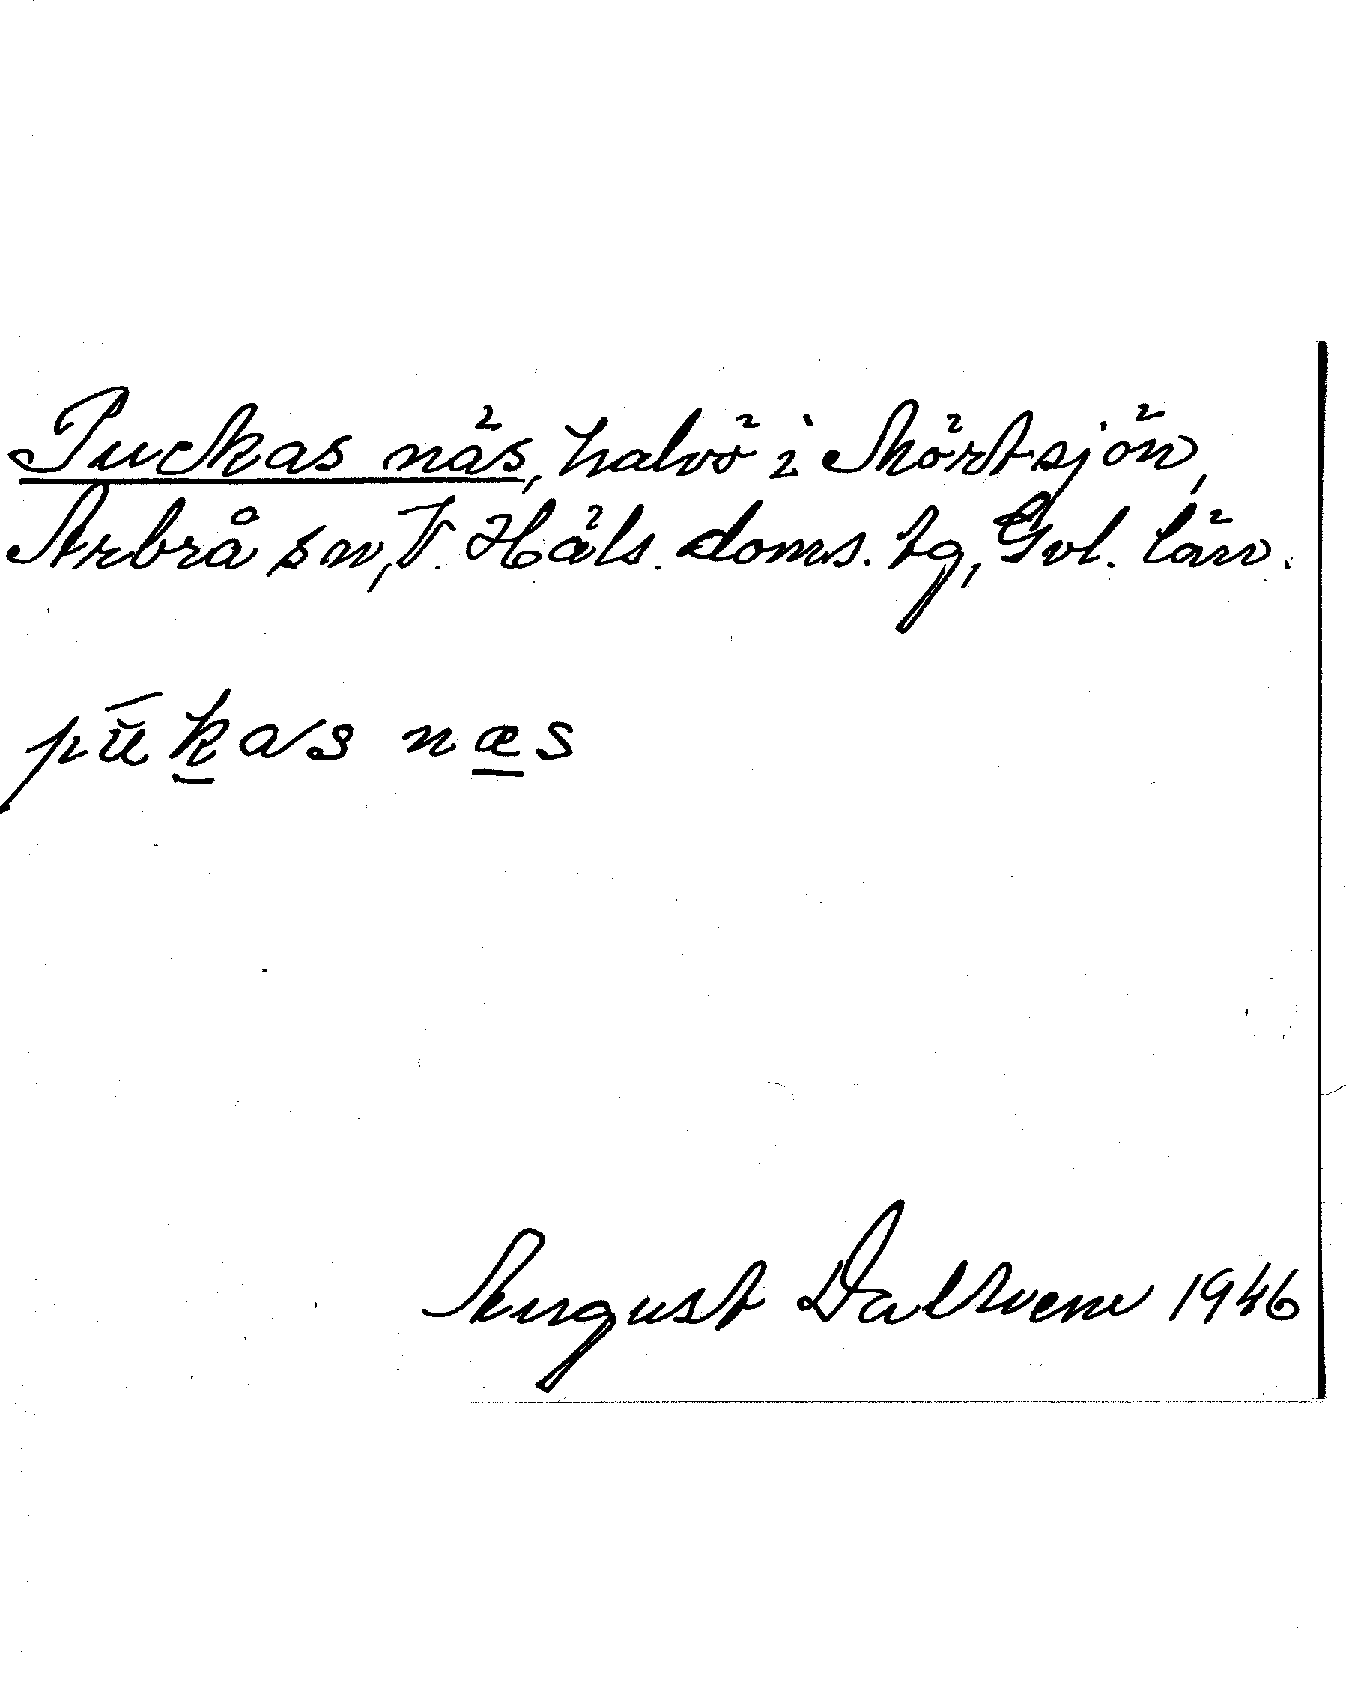 Puckas näs, halvö i Mörtsjön,
Arbrå sn, V. Häls. doms. tg, Gvl. län.
pūkas næs
August Dalkvem 1946